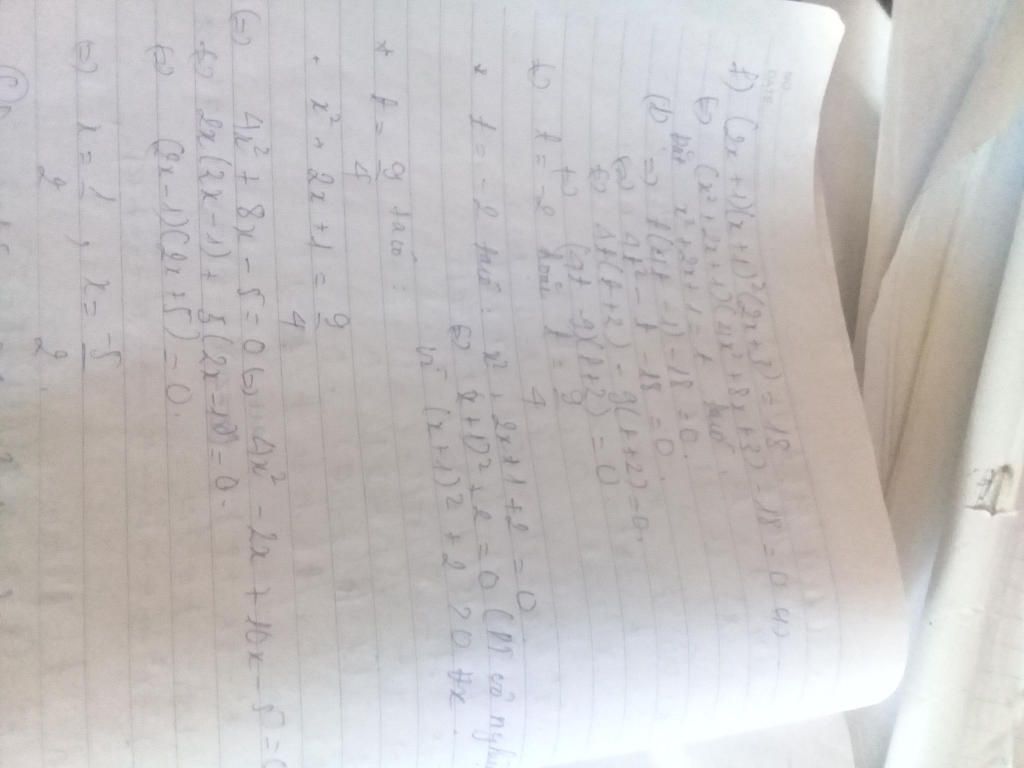 NO
DATE
f) (2x+1)(x+1)²(2x+3) = 18
(=) (x²+2x+1)(4x²+8x+3) - 18 = 0 (1)
Đặt x²+2x+1 = t ta có:
(1) (=) t(4t - 1) - 18 = 0.
(=) 4t² - t - 18 = 0
(=) 4t(t+2) - 9(t+2) = 0.
(=) (4t - 9)(t+2) = 0
(=) t = -2 hoặc t = 9/4
* t = -2 ta có: x² + 2x+1+2 = 0
(=) (x+1)²+2 = 0 (PT vô nghiệ
vì (x+1)² + 2 > 0 ∀x.
* t = 9/4 ta có:
x² + 2x + 1 = 9/4
(=) 4x² + 8x - 5 = 0 (=) 4x² - 2x + 10x - 5 = 0
(=) 2x(2x-1) + 5(2x-1) = 0.
(=) (2x-1)(2x+5) = 0.
(=) x = 1/2, x = -5/2